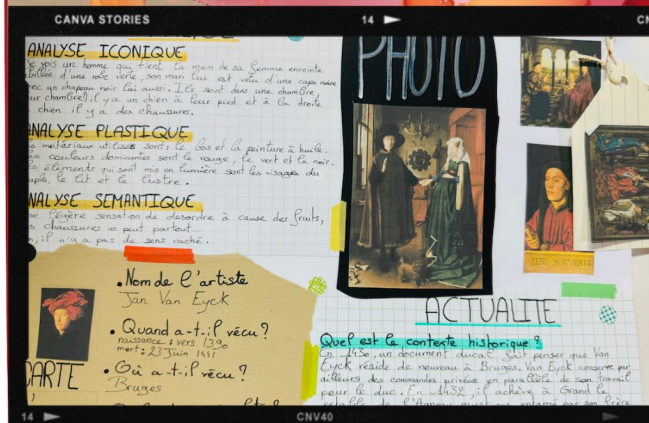 CANVA STORIES
14
ANALYSE ICONIQUE
vois un homme qui tient la main de sa femme enceinte
d'une robe verte, son mari lui est vêtu d'une cape noire
un chapeau noir lui aussi. Ils sont dans une chambre,
chambre) il y a un chien à leur pied et à la droite
chien il y a des chaussures.
ANALYSE PLASTIQUE
matériaux utilisés sont : le bois et la peinture à huile.
couleurs dominantes sont le rouge, le vert et le noir.
éléments qui sont mis en lumière sont les visages du
le lit et le lustre.
ANALYSE SEMANTIQUE
légère sensation de désordre à cause des fruits,
chaussures un peut partout...
il n'y a pas de sens caché.
PHOTO
• Nom de l'artiste
Jan Van Eyck
• Quand a-t-il vécu ?
naissance : vers 1390
mort : 23 Juin 1441
• Où a-t-il vécu ?
Bruges
CARTE
ACTUALITE
Quel est le contexte historique ?
En 1430, un document ducal fait penser que Van
Eyck réside de nouveau à Bruges. Van Eyck conserve par
ailleurs des commandes privées en parallèle de son travail
pour le duc. En 1432, il achève à Grand le
retable de l'Agneau par son frère
14
CNV40